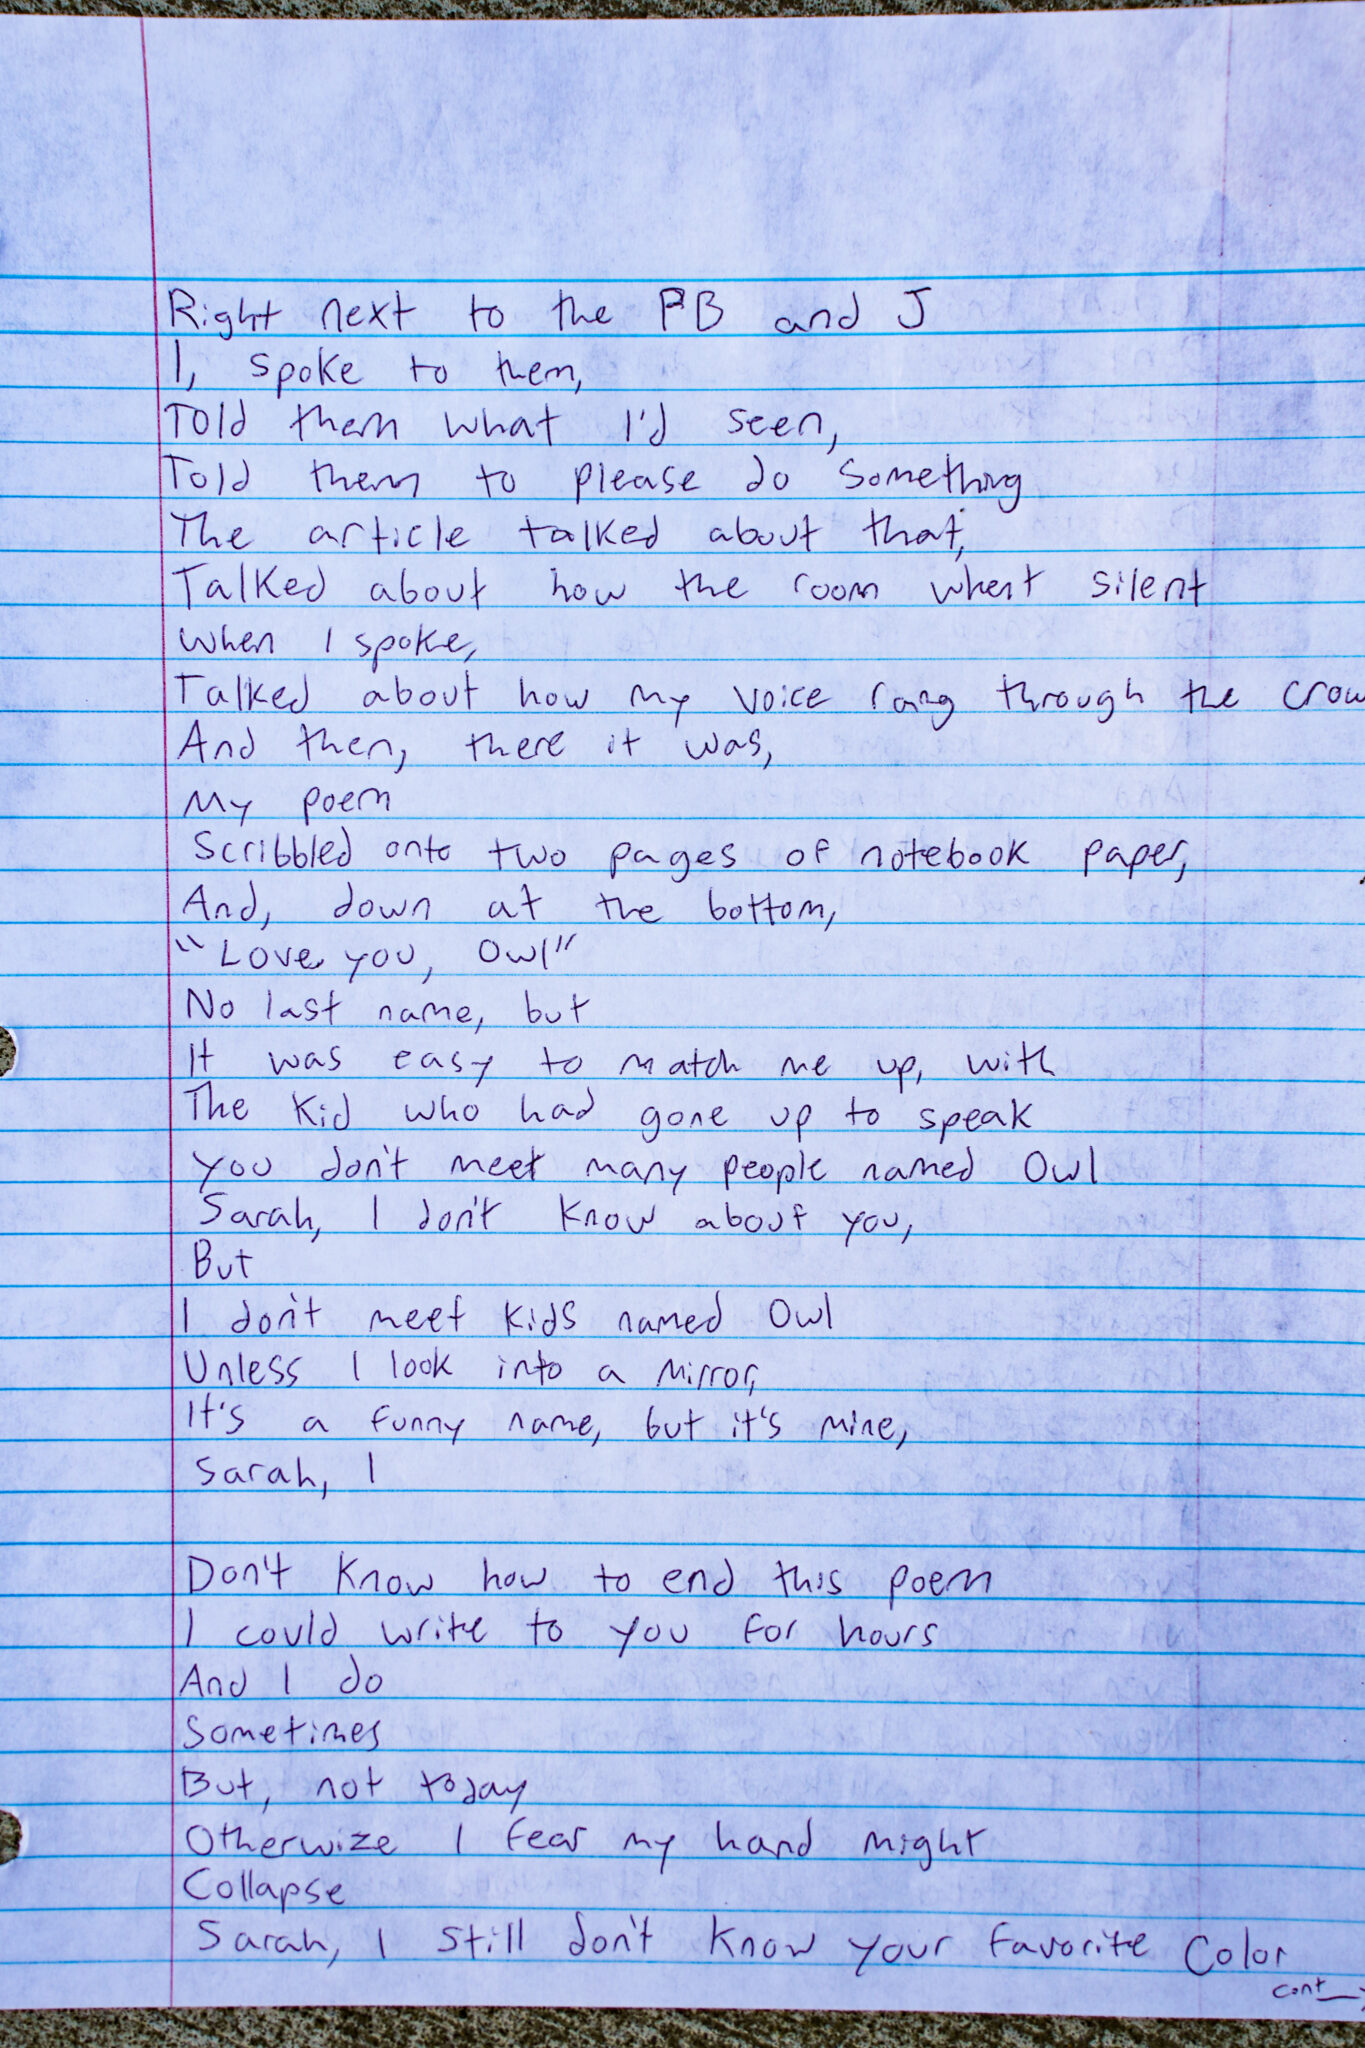 Right next to the PB and J
I, spoke to them,
Told them what I'd seen,
Told them to please do something
The article talked about that,
Talked about how the room whent silent
when I spoke,
Talked about how my voice rang through the crow
And then, there it was,
My poem
Scribbled onto two pages of notebook paper,
And, down at the bottom,
"Love you, Owl"
No last name, but
It was easy to match me up, with
The kid who had gone up to speak
you don't meet many people named Owl
Sarah, I don't know about you,
But
I don't meet kids named Owl
Unless I look into a mirror,
It's a funny name, but it's mine,
Sarah, I
Don't know how to end this poem
I could write to you for hours
And I do
Sometimes
But, not today
Otherwize I fear my hand might
Collapse
Sarah, I still don't know your favorite color
cont →